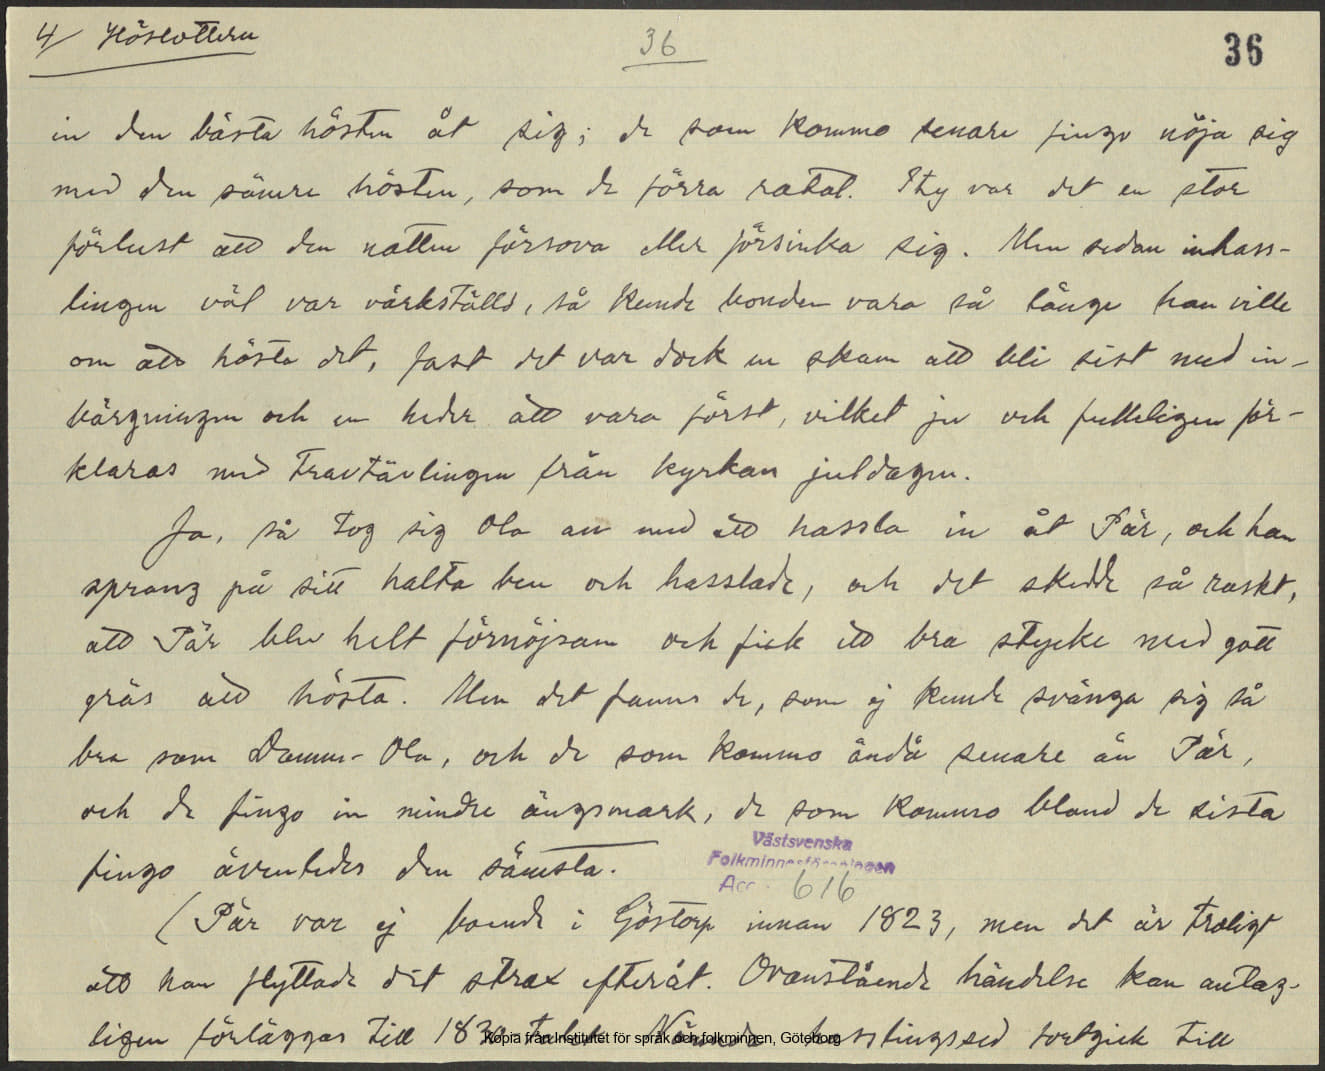 4/ Höslottern
36
36
in den bästa hösten åt sig; de som kommo senare fingo nöja sig
med den sämre hösten, som de förra ratat. Ity var det en stor
förlust att den natten försova eller försinka sig. Men sedan inhass-
lingen väl var värkställd, så kunde bonden vara så länge han ville
om att hösta det, fast det var dock en skam att bli sist med in-
bärgningen och en heder att vara först, vilket ju och fulleligen för-
klaras med Travtävlingen från kyrkan juldagen.
Ja, så tog sig Ola an med att hassla in åt Pär, och han
sprang på sitt halta ben och hasslade, och det skedde så raskt,
att Pär blev helt förnöjsam och fick ett bra stycke med gott
gräs att hösta. Men det fanns de, som ej kunde svänga sig så
bra som Damm-Ola, och de som kommo ändå senare än Pär,
och de fingo in mindre ängsmark, de som kommo bland de sista
fingo ävenledes den sämsta.
Västsvenska
Folkminnesföreningen
Acc. 616
(Pär var ej boende i Göstorp innan 1823, men det är troligt
att han flyttade dit strax efteråt. Ovanstående händelse kan antag-
ligen förläggas till 1830 talet. Nämnda hasslingssed fortgick till
Kopia från Institutet för språk och folkminnen, Göteborg